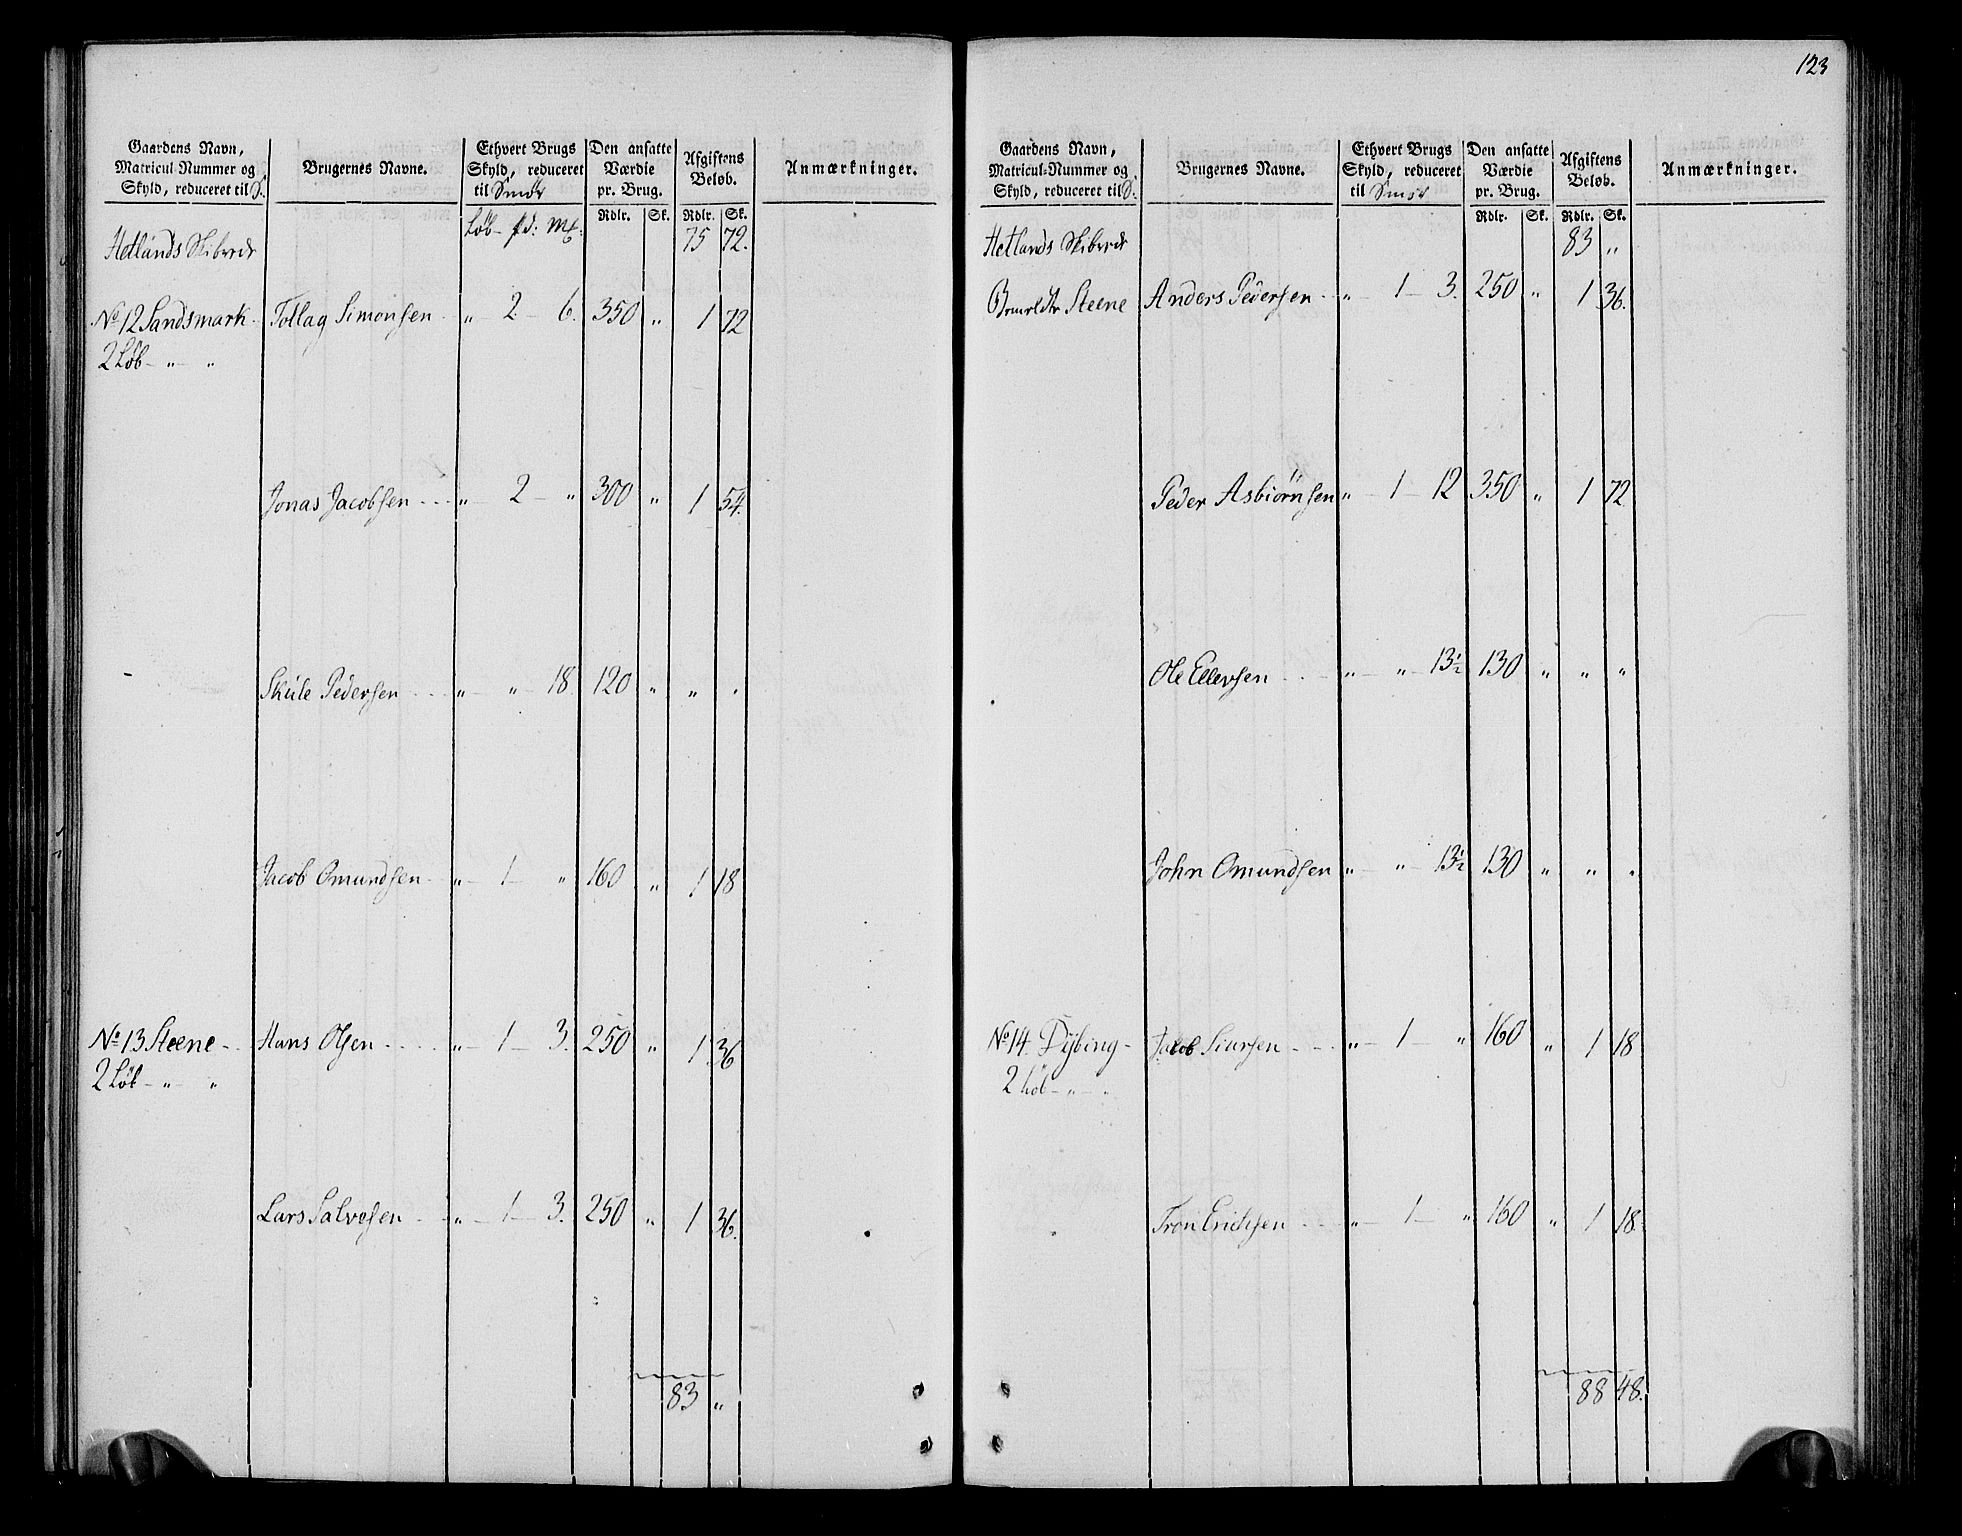 Gaardens Navn, Matricul-Nummer og Skyld, reduceret til S. | Brugernes Navne. | Ethvert Brugs Skyld, reduceret til Smör | Den ansatte Værdie pr. Brug. | Afgiftens Beløb. | Anmærkninger.
Löb - pd: Mk: | Rdlr. | Sk. | Rdlr. | Sk.
Hetlands Skibrede | 75 | 72.
No 12 Sandsmark - | Tollag Simonsen - | „ - 2 - 6. | 350 | „ | 1 | 72
2 Löb - „ - „
Jonas Jacobsen - - - | „ - 2 - „ | 300 | „ | 1 | 54.
Skule Pedersen - - - | „ - „ - 18 | 120 | „ | „ | „
Jacob Omundsen - | „ - 1 - „ | 160 | „ | 1 | 18
No 13 Steene - - | Hans Olsen - - - - | „ - 1 - 3. | 250 | „ | 1 | 36
2 Löb - „ - „
Lars Salvesen - - | „ - 1 - 3. | 250 | „ | 1 | 36.
83 | „
123
Gaardens Navn, Matricul-Nummer og Skyld, reduceret til S. | Brugernes Navne. | Ethvert Brugs Skyld, reduceret til Smör | Den ansatte Værdie pr. Brug. | Afgiftens Beløb. | Anmærkninger.
Rdlr. | Sk. | Rdlr. | Sk.
Hetlands Skibrede | 83 | „
Steene | Anders Pedersen - - | „ - 1 - 3. | 250 | „ | 1 | 36.
Peder Asbiörnsen | „ - 1 - 12 | 350 | „ | 1 | 72
Ole Ellevsen - - - | „ - „ - 13½ | 130 | „ | „ | „
John Omundsen | „ - „ - 13½ | 130 | „ | „ | „
No 14. Dÿbing - | Jacob Siursen - - - | „ - 1 - „ | 160 | „ | 1 | 18
2 Löb - „ - „
Tron Erichsen - - - | „ - 1 - „ | 160 | „ | 1 | 18.
88 | 48.